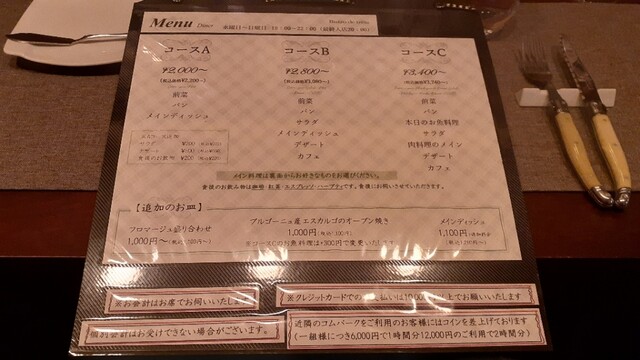 Menu Diner 水曜日～日曜日
コースA
¥2,000～
前菜
パン
メインディッシュ
サラダ ¥200
デザート
食後のお飲物 ¥200
コースB
¥2,800～
前菜
パン
サラダ
メインディッシュ
デザート
カフェ
コースC
¥3,400～
前菜
パン
本日のお魚料理
サラダ
肉料理のメイン
デザート
カフェ
メイン料理は裏面からお好きなものをお選びください。
食後のお飲み物は珈琲・紅茶・エスプレッソ・ハーブティです。食後にお伺いさせていただきます。
【追加のお皿】
フロマージュ盛り合わせ
1,000円～
ブルゴーニュ産エスカルゴのオーブン焼き
1,000円
メインディッシュ
1,100円
※コースCのお魚料理は+300円で変更いたします
※お会計はお席でお伺いいたします
※クレジットカードでの
上でお願いいたします
個別会計はお受けできない場合がございます。
近隣のコムパークをご利用のお客様にはコインを差上げております
(一組様につき6,000円で1時間分12,000円のご利用で2時間分)